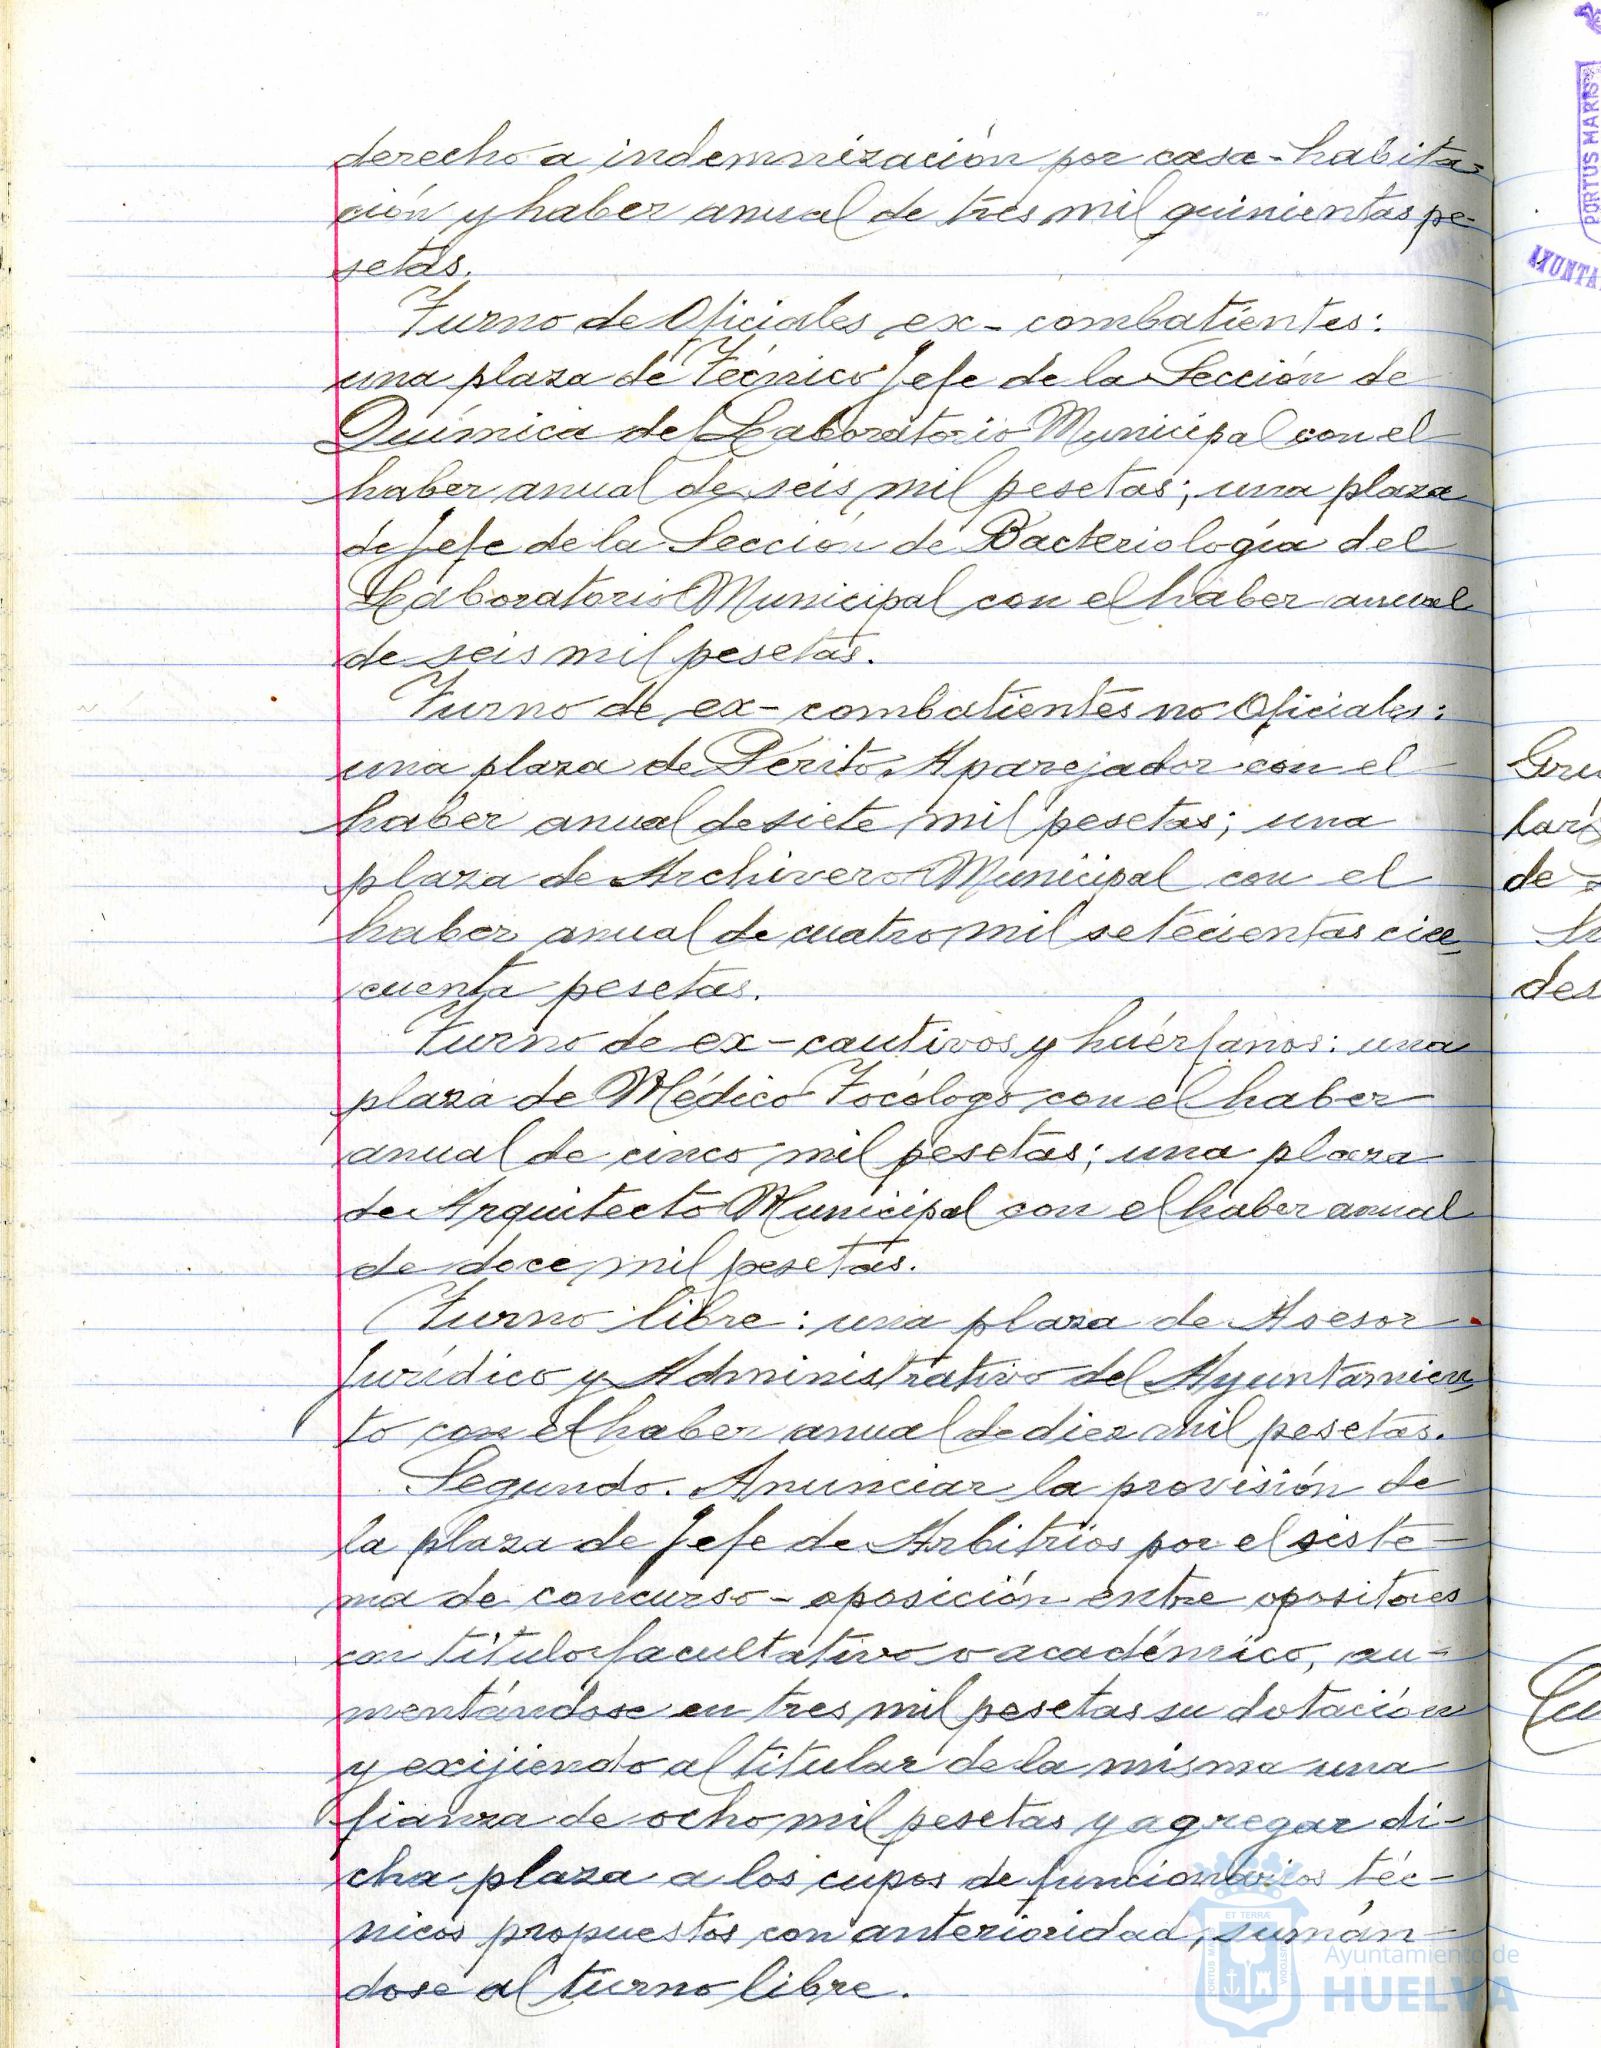 derecho a indemnización por casa-habita-
ción y haber anual de tres mil quinientas pe-
setas.
Turno de Oficiales ex-combatientes:
una plaza de Técnico Jefe de la Sección de
Química del Laboratorio Municipal con el
haber anual de seis mil pesetas; una plaza
de Jefe de la Sección de Bacteriología del
Laboratorio Municipal con el haber anual
de seis mil pesetas.
Turno de ex-combatientes no Oficiales:
una plaza de Perito Aparejador con el
haber anual de siete mil pesetas; una
plaza de Archivero Municipal con el
haber anual de cuatro mil setecientas cin
cuenta pesetas.
Turno de ex-cautivos y huérfanos: una
plaza de Médico Tocólogo con el haber
anual de cinco mil pesetas; una plaza
de Arquitecto Municipal con el haber anual
de doce mil pesetas.
Turno libre: una plaza de Asesor
Jurídico y Administrativo del Ayuntamien
to con el haber anual de diez mil pesetas.
Segundo. Anunciar la provisión de
la plaza de Jefe de Arbitrios por el siste-
ma de concurso-oposición entre opositores
con título facultativo o académico, au-
mentándose en tres mil pesetas su dotación
y exijiendo al titular de la misma una
fianza de ocho mil pesetas y agregar di-
cha plaza a los cupos de funcionarios téc-
nicos propuestos con anterioridad, sumán-
dose al turno libre.
PORTUS MARIS
AYUNTA
de
des
Ayuntamiento de
HUELVA